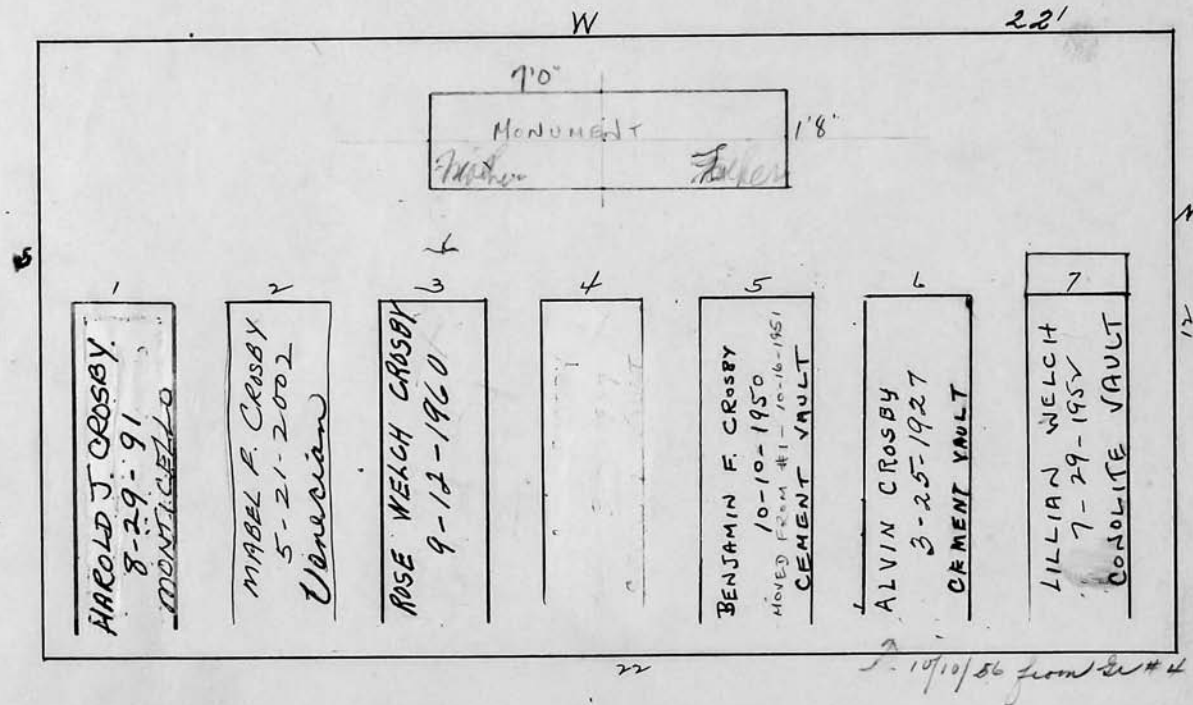 W
22'
7'0"
MONUMENT
1'8"
Mother
Father
N
12
1
HAROLD J. CROSBY.
8-29-91
MONTICELLO
2
MABEL P. CROSBY
5-21-2002
Venecian
3
ROSE WELCH CROSBY
9-12-1960
4
5
BENJAMIN F. CROSBY
10-10-1950
MOVED FROM #1-10-16-1951
CEMENT VAULT
6
ALVIN CROSBY
3-25-1927
CEMENT VAULT
7
LILLIAN WELCH
7-29-1952
CONSOLITE VAULT
22
10/10/56 from Gr #4